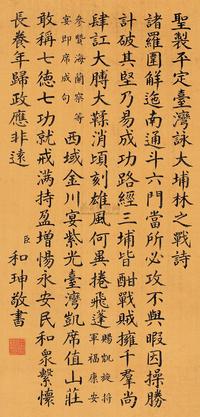 聖製平定臺灣詠大埔林之戰詩
諸羅圍解迤南通斗六門當所必攻不與暇因操勝
計破其堅乃易成功路經三埔皆酣戰賊擁千羣尚
肆訌大膊大消頃刻雄風何異捲飛蓬賜凱旋將軍福康安
參贊海蘭察等宴即席成句西域金川宴紫光臺灣凱席值山莊
敢稱七德七功就戒滿持盈增惕永安民和眾繫懷
長養年歸政應非遠
臣和珅敬書